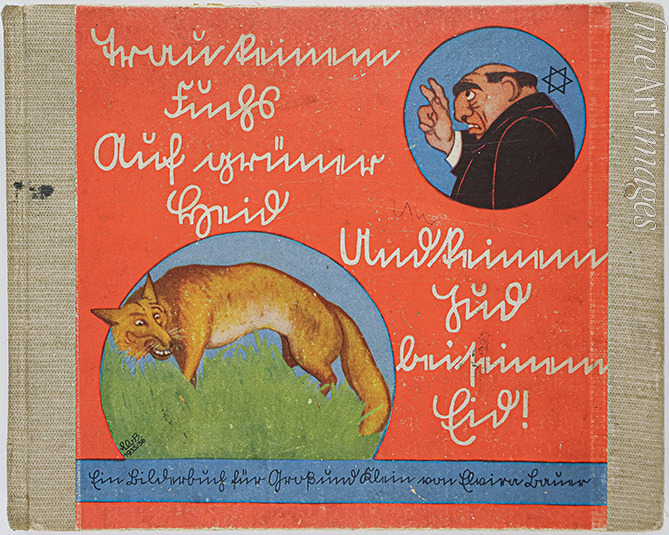 Trau keinem
Fuchs
Auf grüner
Heid
Und keinem
Jud
bei seinem
Eid!
1935/36
Ein Bilderbuch für Groß und Klein von Elvira Bauer
fineArtimages